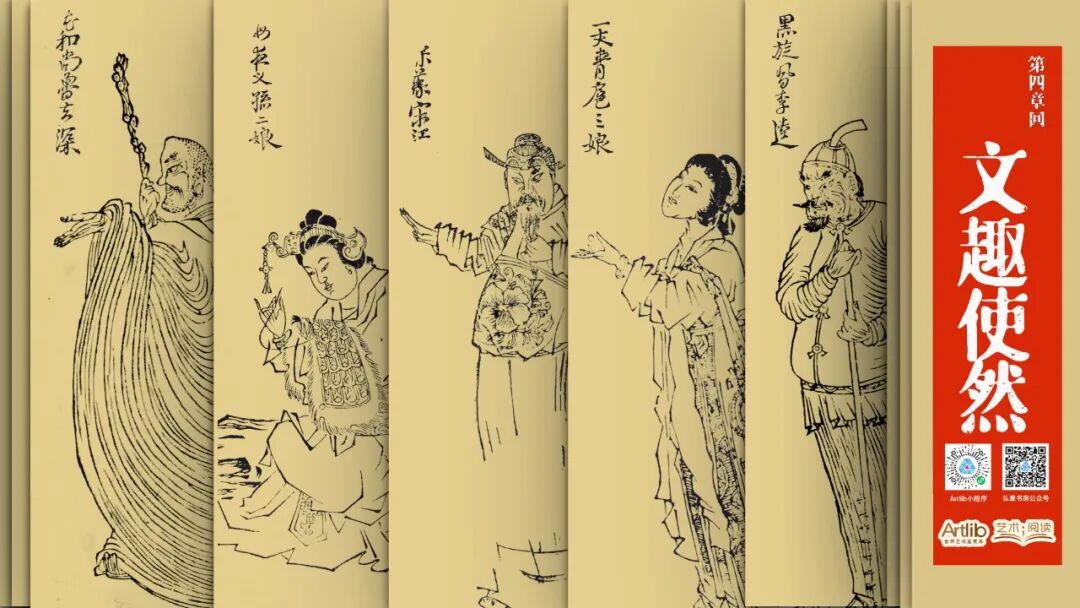 花和尚魯智深
母夜叉孫二娘
宋江
一丈青扈三娘
黑旋風李逵
第四章回
文趣使然
Artlib小程序
弘雅书房公众号
Artlib
世界艺术鉴赏库
艺术 阅读